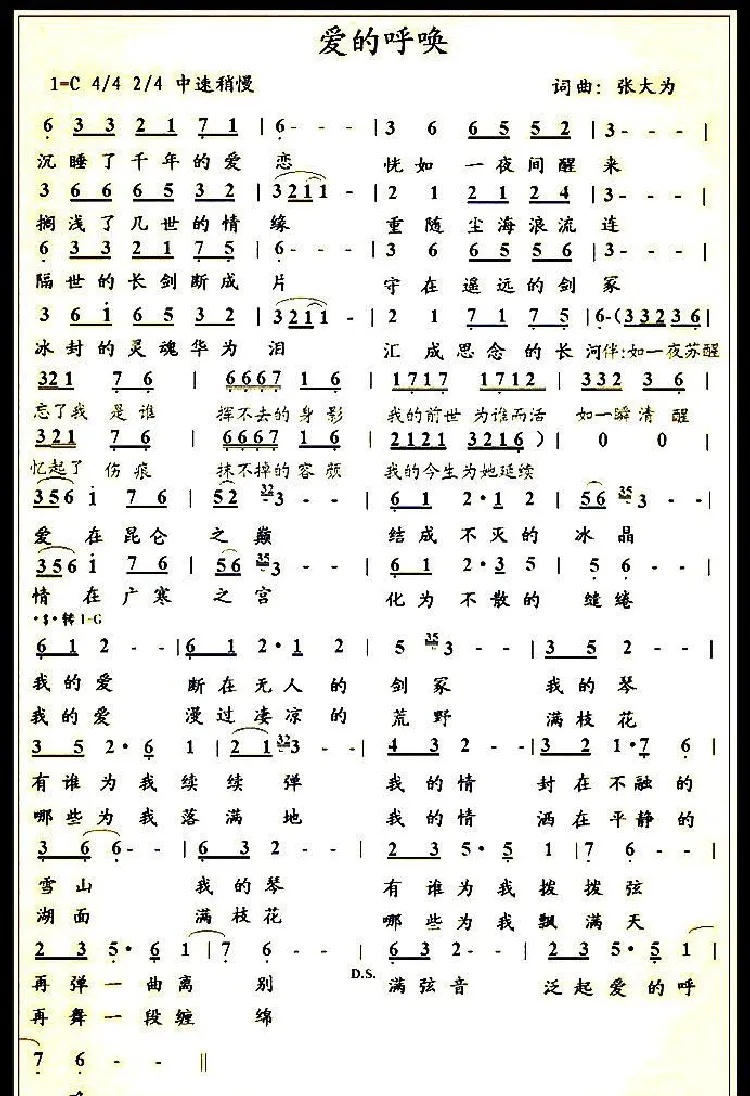 爱的呼唤
1=C 4/4 2/4 中速稍慢 词曲：张大为
6 33 21 71 | 6 - - - | 3 6 66 552 | 3 - - - |
沉睡了千年的爱恋 恍如一夜间醒来
3 66 65 32 | 3211 - | 2 1 21 24 | 3 - - - |
搁浅了几世的情缘 重随尘海浪流连
6 33 21 75 | 6 - - - | 3 6 65 56 | 3 - - - |
隔世的长剑断成片 守在遥远的剑冢
3 61 65 32 | 3211 - | 2 1 71 75 | 6 - (33236 |
冰封的灵魂华为泪 汇成思念的长河伴:如一夜苏醒
321 76 | 6667 16 | 1717 1712 | 332 36 |
忘了我是谁 挥不去的身影 我的前世为谁而活 如一瞬清醒
321 76 | 6667 16 | 2121 3216) | 0 0 |
忆起了伤痕 抹不掉的容颜 我的今生为她延续
356 1 76 | 52 32 3 - - | 61 2·12 | 56 35 3 - - |
爱在昆仑之巅 结成不灭的冰晶
356 1 76 | 56 35 3 - - | 61 2·35 | 56 - - |
情在广寒之宫 化为不散的缱绻
·$·转1=G
61 2 - - | 61 2·1 2 | 5 35 3 - - | 35 2 - - |
我的爱 断在无人的剑冢 我的琴
我的爱 漫过凄凉的荒野 满枝花
35 2·6 1 | 21 32 3 - - | 43 2 - - | 32 1·7 6 |
有谁为我续续弹 我的情 封在不融的
哪些为我落满地 我的情 洒在平静的
36 6 - - | 63 2 - - | 23 5·5 1 | 7 6 - - |
雪山 我的琴 有谁为我拨拨弦
湖面 满枝花 哪些为我飘满天
23 5·6 1 | 7 6 - - | 63 2 - - | 23 5·5 1 |
D.S.
再弹一曲离别 满弦音 泛起爱的呼
再舞一段缠绵
7 6 - - ||